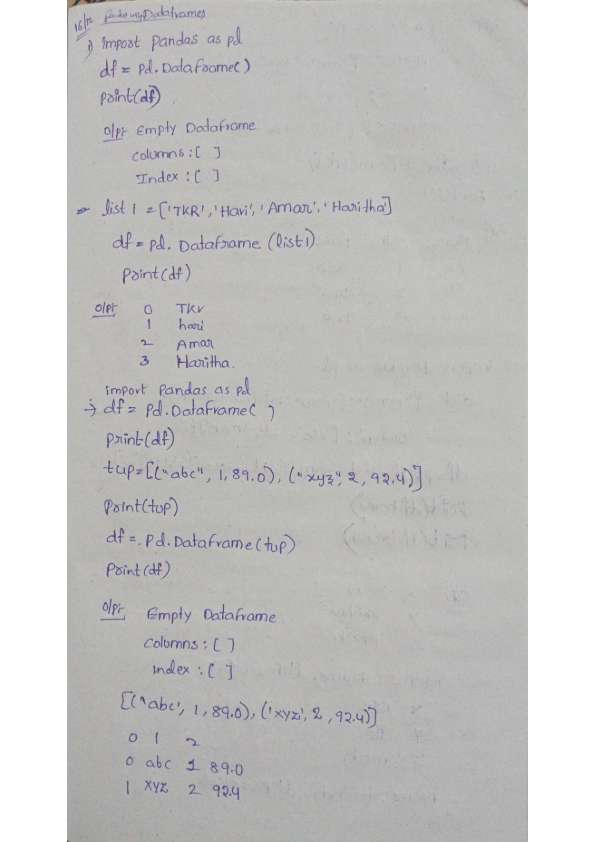 16/12 Dataframes
1) import pandas as pd
df = pd.DataFrame()
print(df)
o/pt Empty Dataframe
columns : [ ]
Index : [ ]
list 1 = ['TKR', 'Hari', 'Amar', 'Haritha']
df = pd. Dataframe (list1)
print(df)
o/pt 0 TKr
1 hari
2 Amar
3 Haritha.
import pandas as pd
→ df = pd.DataFrame( )
print(df)
tup=[("abc", 1, 89.0), ("xyz", 2, 92.4)]
Print(tup)
df = pd.DataFrame(tup)
Print(df)
o/pt Empty Dataframe
columns : [ ]
index : [ ]
[('abc', 1, 89.0), ('xyz', 2, 92.4)]
0 1 2
0 abc 1 89.0
1 xyz 2 92.4